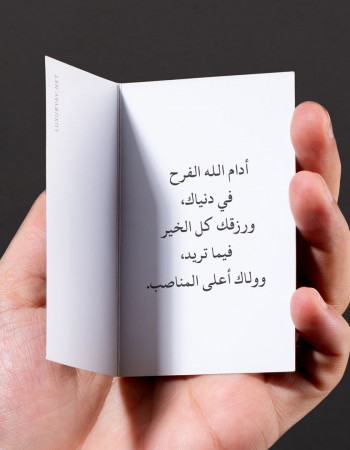 أدام الله الفرح
في دنياك،
ورزقك كل الخير
فيما تريد،
وولاك أعلى المناصب.
LUXURYAY.NET